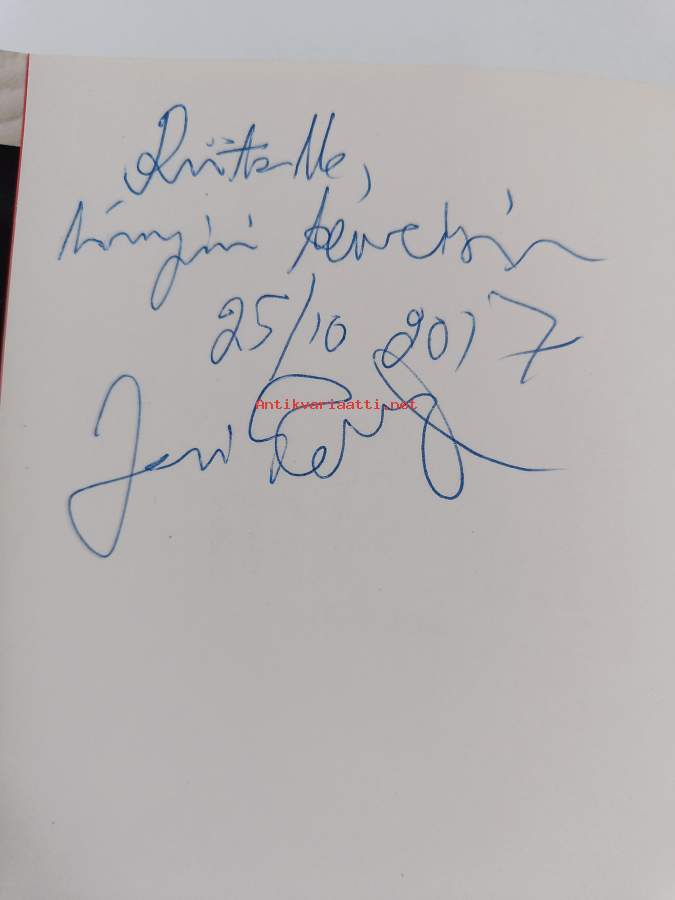 Riitalle,
lämpimin terveisin
25/10 2017
Antikvariaatti.net
Jari